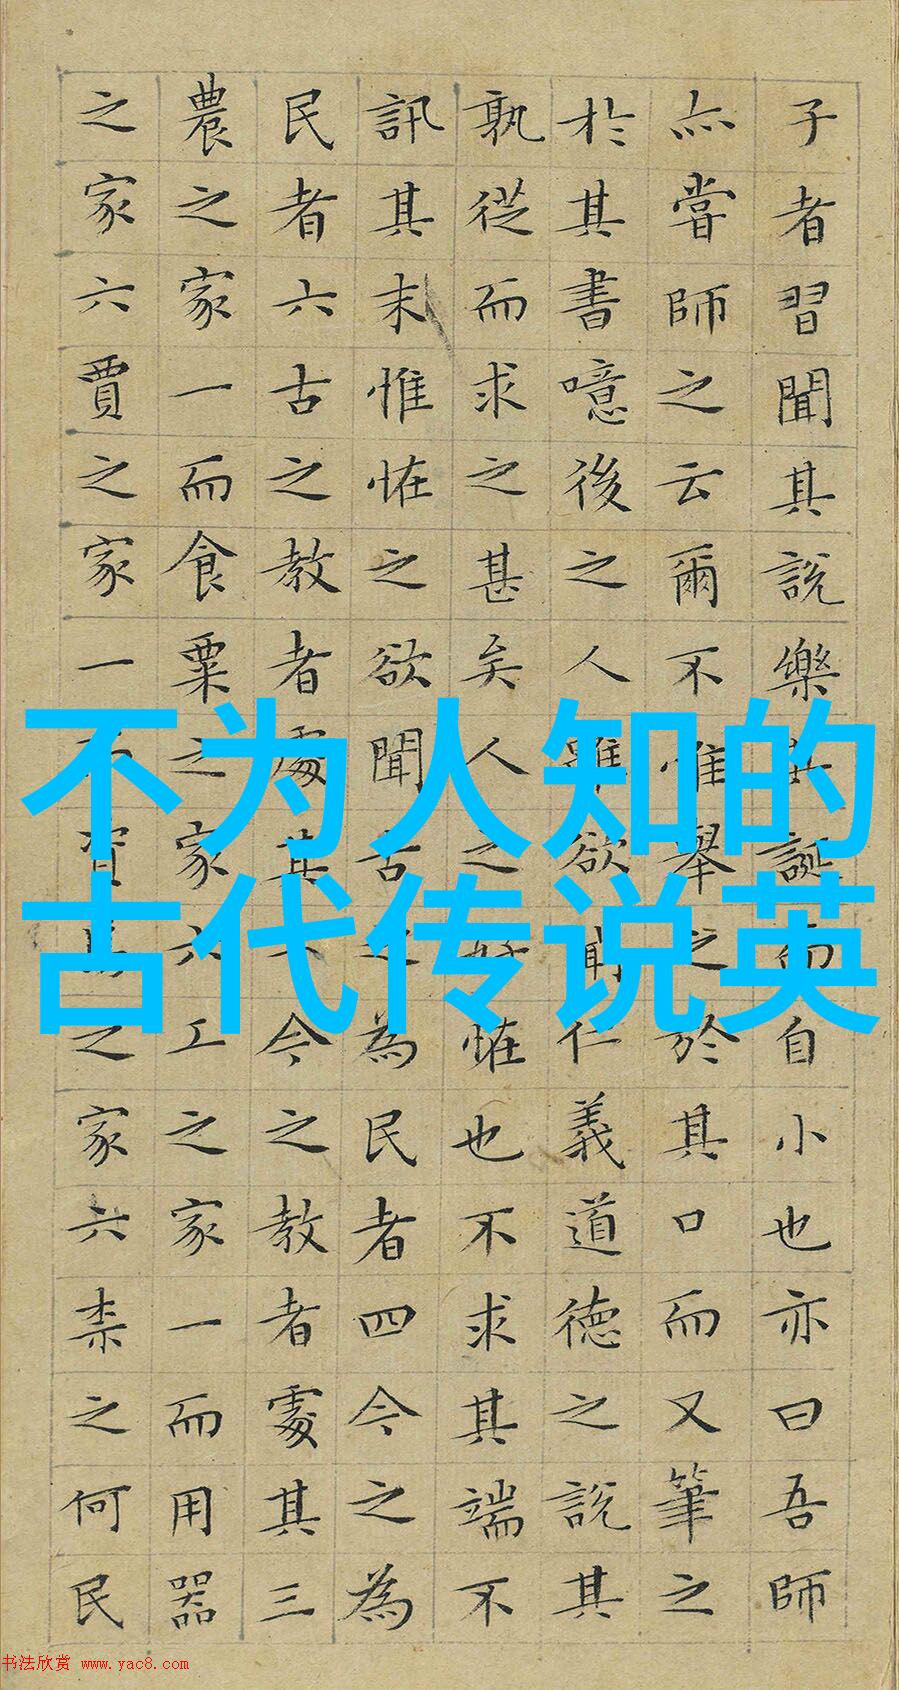 子者習聞其說樂其誕而自小也亦曰吾師
亦嘗師之云爾不惟舉之於其口而又筆之
於其書噫後之人雖欲聞仁義道德之說其
孰從而求之甚矣人之好恠也不求其端不
訊其末惟恠之欲聞古之為民者四今之為
民者六古之教者處其一今之教者處其三
農之家一而食粟之家六工之家一而用器
之家六賈之家一而資焉之家六柰之何民
不为人知的
古代传说英
书法欣赏 www.yac8.com